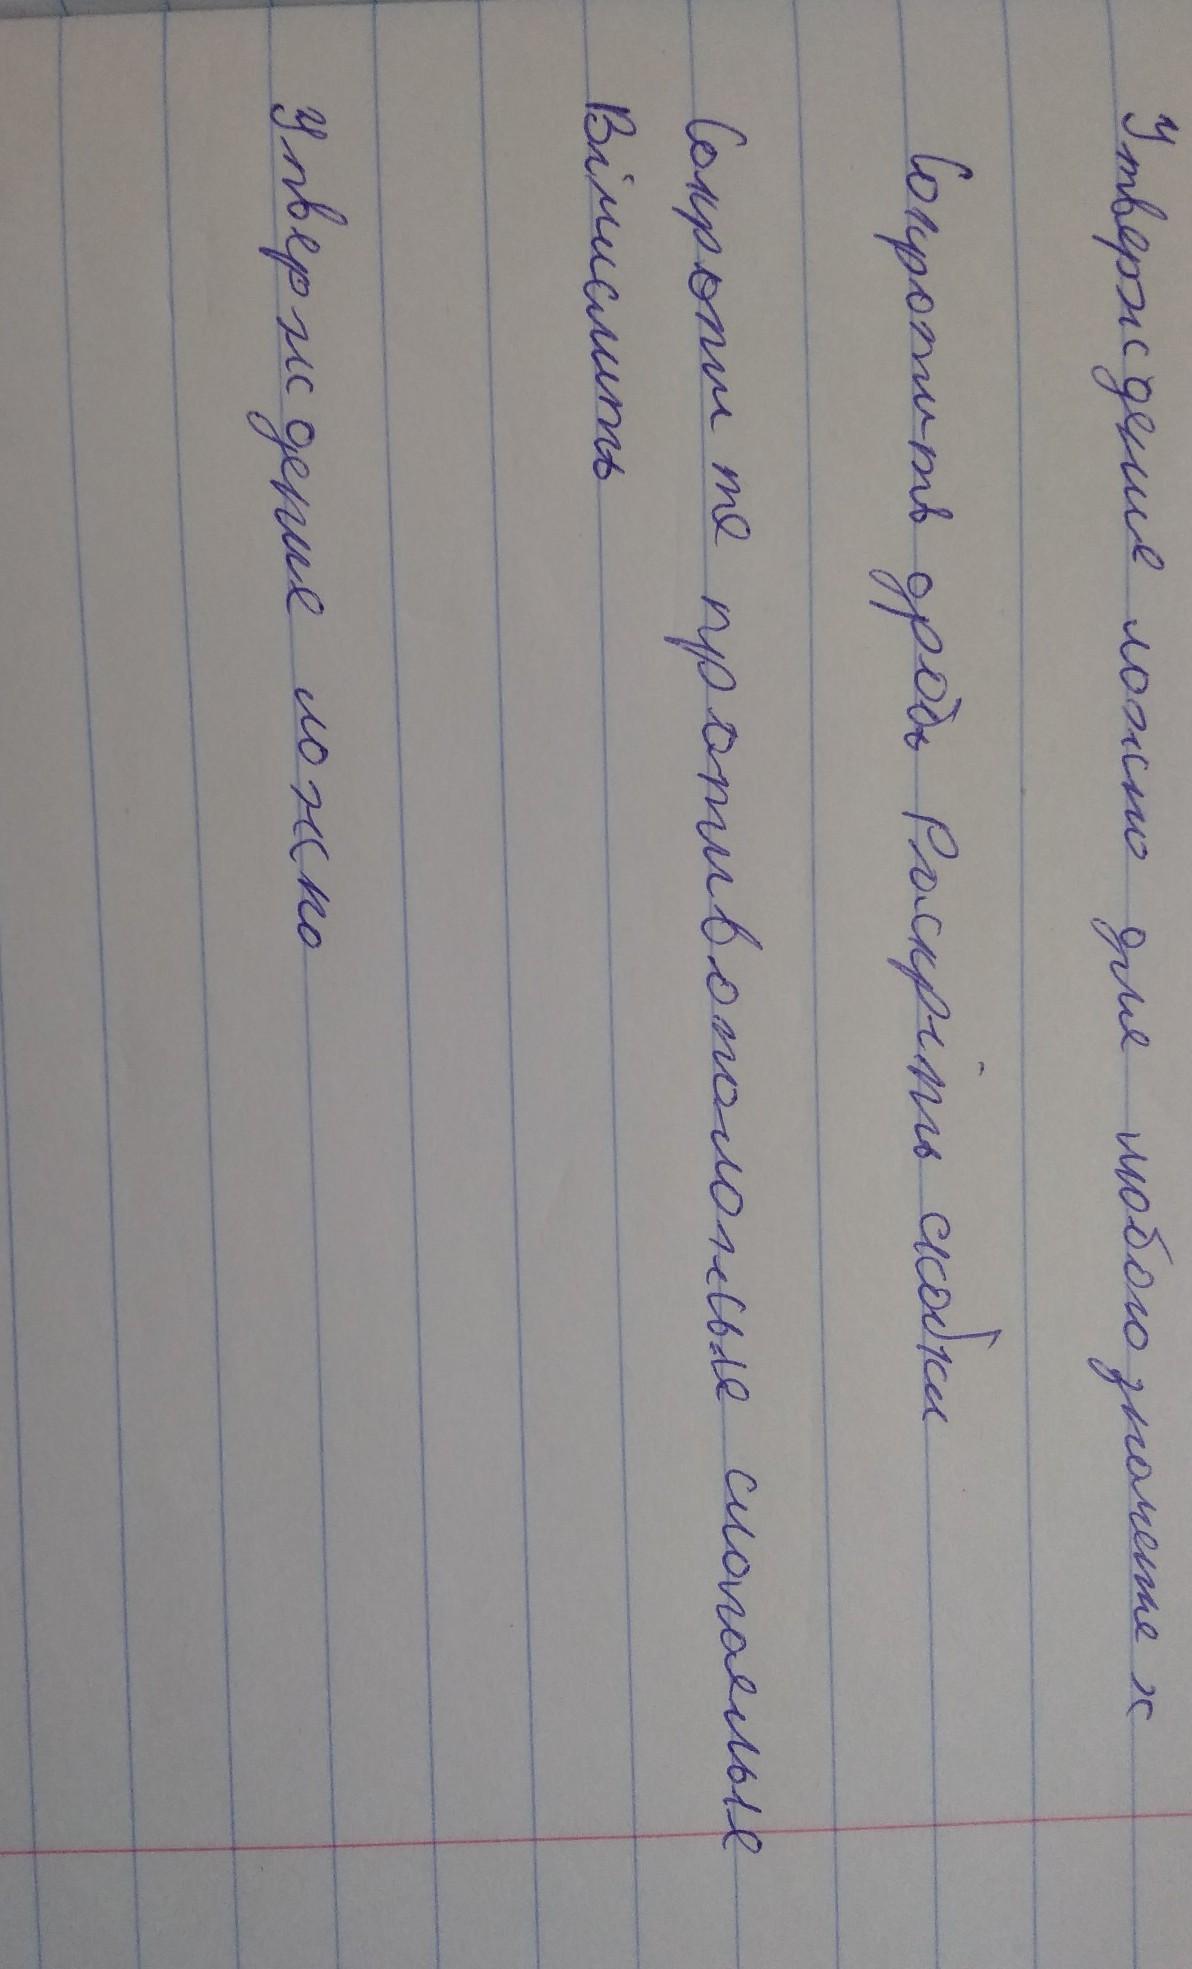 Утверждение ложно для любого значение х
Сократить дробь Раскрыть скобки
Сократите противоположные слагаемые
Вычислить
Утверждение ложно